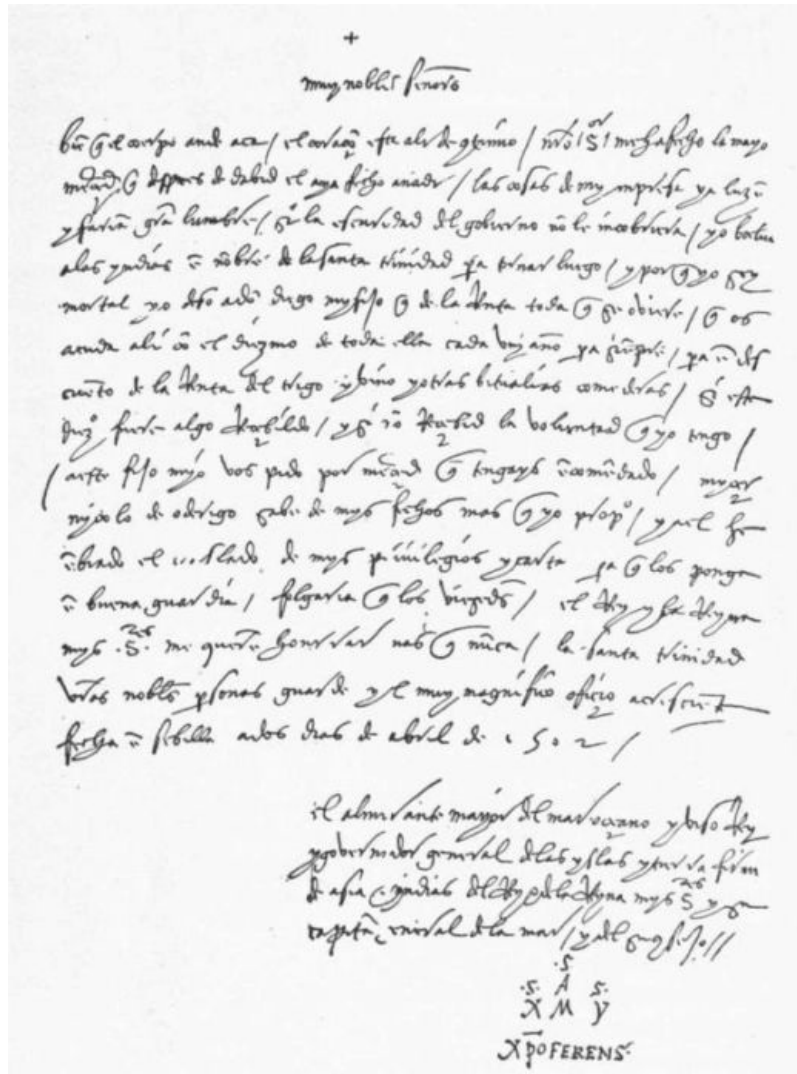 +
muy nobles señors
biē q̃ el cuerpo ande aca / el coraçō esta ali de cōtinuo / nr̄o Sor me ha fecho la mayor
merçed q̃ despues de dabid el aya fecho a nadi / las cosas de my inpresa ya luzē
y fariā grā lunbre / si la escuridad del gobierno nō le incobriera / yo buelvo
a las yndias ē nōbre de la santa trinidad pa tornar luego / y por q̃ yo soy
mortal yo dexo a dō diego my fijo q̃ de la renta toda q̃ se obiere / q̃ os
acuda ali cō el diezmo de toda ella cada un año pa siēpre / pa ē des
cuēto de la renta del trigo y vino y otras bitualias comederas / si este
diezo fuere algo reçebildo / y si nō reçebid la voluntad q̃ yo tengo /
/ a este fijo myo vos pido por merçed q̃ tengays ēcomēdado / myçer
nycolo de oderigo sabe de mys fechos mas q̃ yo propo / y a el he
ēbiado el traslado de mys privilegios y carta pa q̃ los ponga
ē buena guardia / folgaria q̃ los viesedes / el Rey y la Reyna
mys Sres me quierē honrrar mas q̃ nūca / la santa trinidad
vr̄as nobles psonas guarde y el muy magnifico ofiçio acresciēte
fecha ē sebilla a dos dias de abril de 1502 /
el almirante mayor del mar oçeano y viso Rey
y governador general de las yslas y tierra firme
de asia e yndias del Rey e de la Reyna mys Sres y su
capitā general de la mar / y del su cōsejo //
.S.
.S. A S.
X M Y
Xp̄oFERENS.